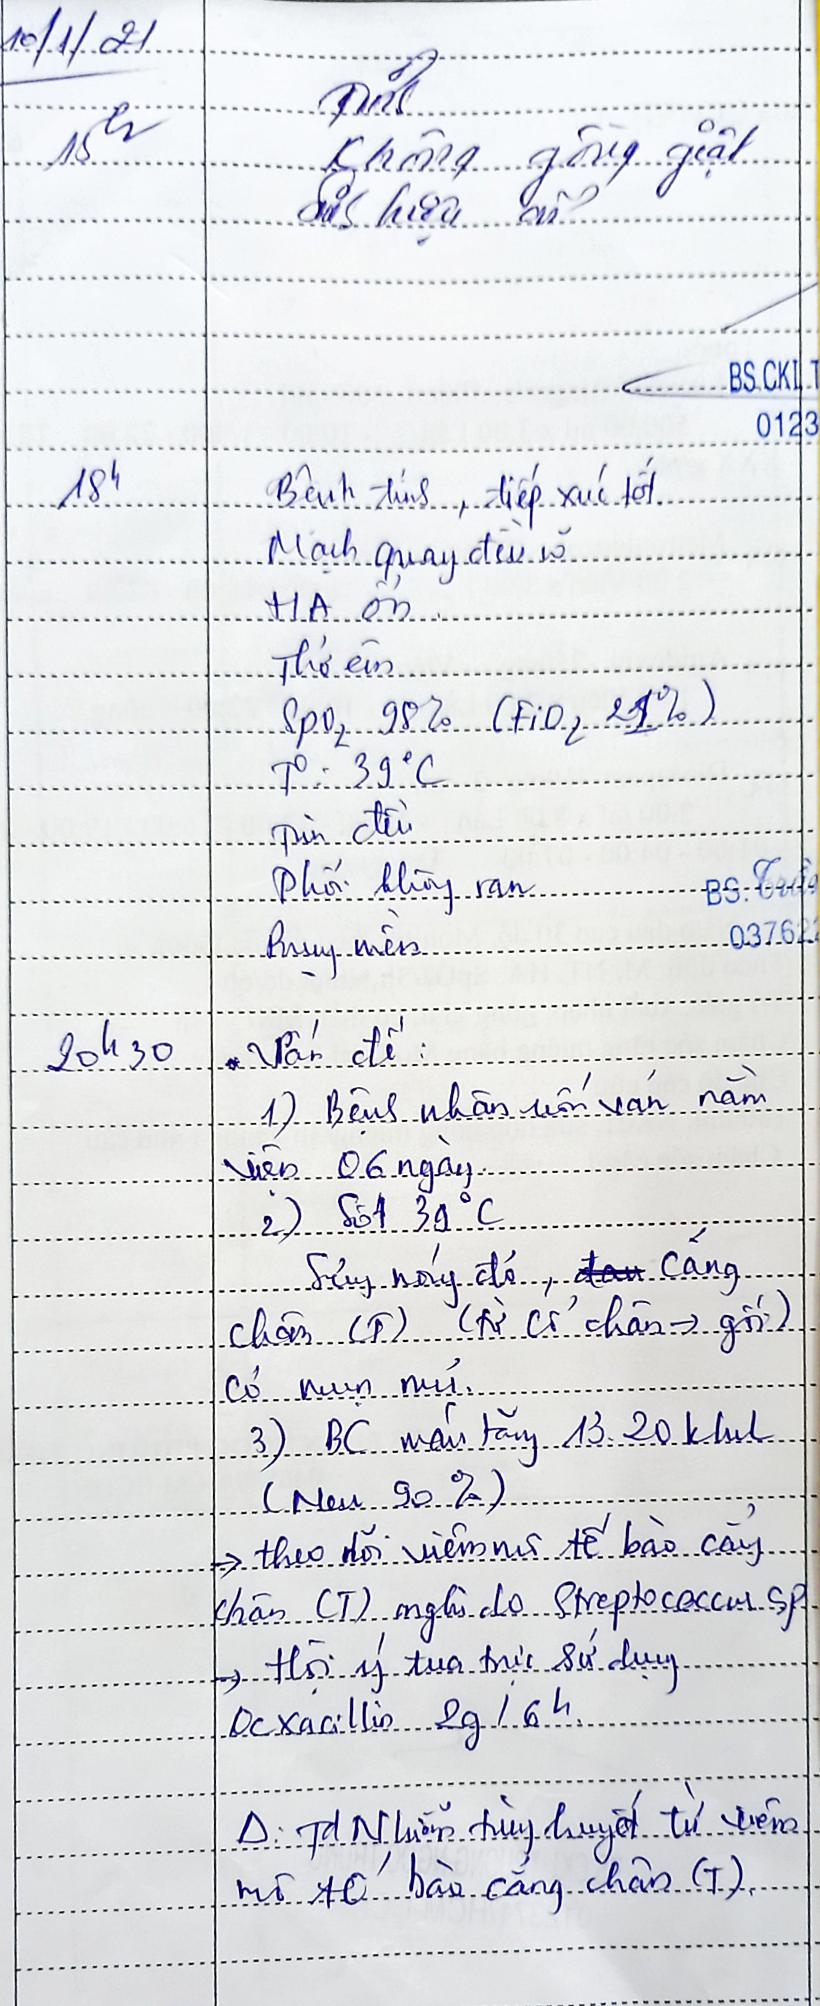 10/1/21
15h
Tỉnh
Không gồng giật
Sinh hiệu ổn
BS.CKI.T
0123
18h
Bệnh tỉnh, tiếp xúc tốt
Mạch quay đều rõ
HA ổn.
Thở êm
SpO2 98% (FiO2 21%)
T°: 39°C
Tim đều
Phổi không ran
BS. Trần
03762
Bụng mềm
20h30
. Vấn đề:
1) Bệnh nhân uốn ván nằm
viện 06 ngày.
2) Sốt 39°C
Sưng nóng đỏ, đau cẳng
chân (T) (từ cổ chân → gối)
có mụn mủ.
3) BC máu tăng 13.20 k/uL
(Neu 90%)
→ theo dõi viêm mô tế bào cẳng
chân (T) nghi do Streptococcus sp
→ Hội ý tua trực sử dụng
Ocxacillin 2g/6h.
Δ: Td Nhiễm trùng huyết từ viêm
mô tế bào cẳng chân (T).